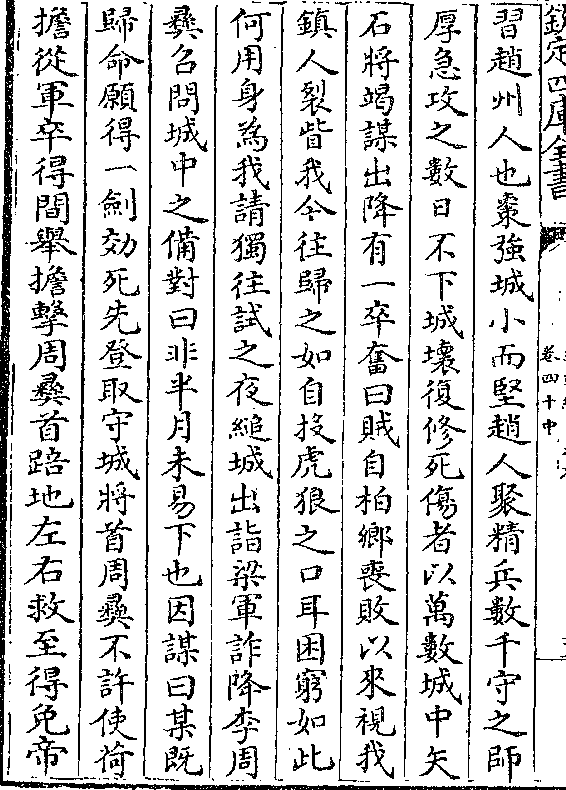 欽定四庫全書
卷四十中
習趙州人也棗強城小而堅趙人聚精兵數千守之師
厚急攻之數日不下城壞復修死傷者以萬數城中矢
石將竭謀出降有一卒奮曰賊自柏鄉喪敗以來視我
鎮人裂眥我今往歸之如自投虎狼之口耳困窮如此
何用身為我請獨往試之夜縋城出詣梁軍詐降李周
彝召問城中之備對曰非半月未易下也因謀曰某既
歸命願得一劍効死先登取守城將首周彝不許使荷
擔從軍卒得間舉擔擊周彝首踣地左右救至得免帝